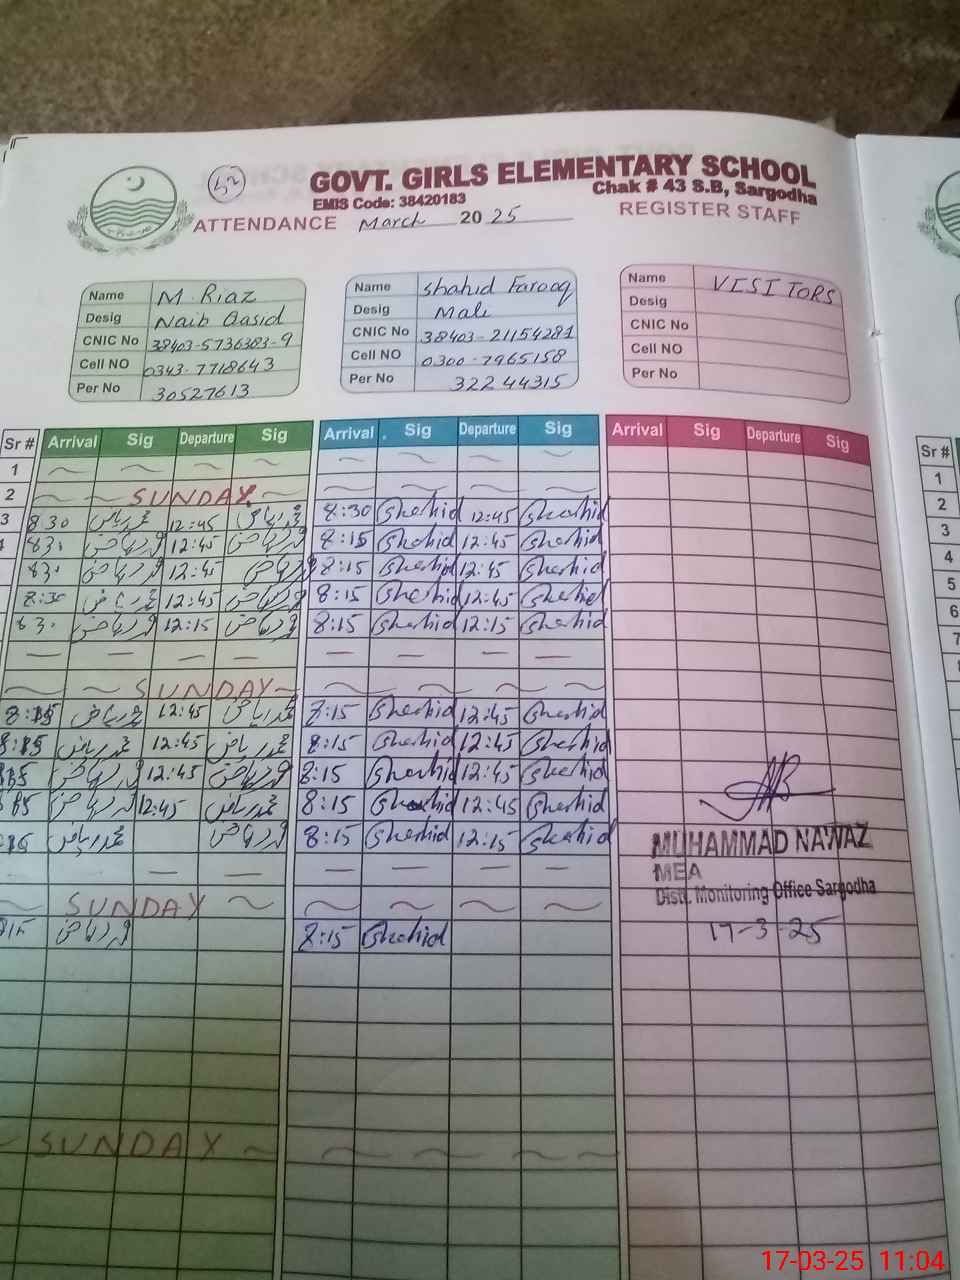 52
GOVT. GIRLS ELEMENTARY SCHOOL
EMIS Code: 38420183 Chak # 43 S.B, Sargodha
ATTENDANCE March 2025 REGISTER STAFF
Name M. Riaz
Desig Naib Qasid
CNIC No 38403-5736383-9
Cell NO 0343-7718643
Per No 30527613
Name Shahid Farooq
Desig Mali
CNIC No 38403-21154281
Cell NO 0300-7965158
Per No 32244315
Name VISITORS
Desig
CNIC No
Cell NO
Per No
Sr # Arrival Sig Departure Sig Arrival Sig Departure Sig Arrival Sig Departure Sig Sr #
1 1
2 SUNDAY 2
3 8 30 محمد ریاض 12:45 محمد ریاض 8:30 Shahid 12:45 Shahid 3
4 830 محمد ریاض 12:45 محمد ریاض 8:15 Shahid 12:45 Shahid 4
830 محمد ریاض 12:45 محمد ریاض 8:15 Shahid 12:45 Shahid 5
8:30 محمد ریاض 12:45 محمد ریاض 8:15 Shahid 12:45 Shahid 6
830 محمد ریاض 12:15 محمد ریاض 8:15 Shahid 12:15 Shahid 7
SUNDAY
8:15 محمد ریاض 12:45 محمد ریاض 8:15 Shahid 12:45 Shahid
8:15 محمد ریاض 12:45 محمد ریاض 8:15 Shahid 12:45 Shahid
محمد ریاض 12:45 محمد ریاض 8:15 Shahid 12:45 Shahid
محمد ریاض 12:45 محمد ریاض 8:15 Shahid 12:45 Shahid
محمد ریاض محمد ریاض 8:15 Shahid 12:15 Shahid
MUHAMMAD NAWAZ
MEA
Distt. Monitoring Office Sargodha
SUNDAY
815 محمد ریاض 8:15 Shahid 17-3-25
SUNDAY
17-03-25 11:04